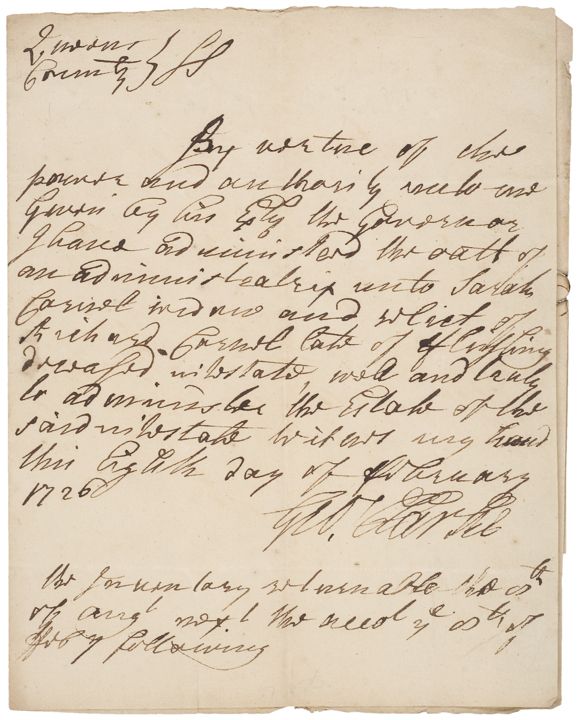 Queens
County } SS
By vertue of the
power and authority unto me
Given by his Exly the Governor
I have administred the oath of
an administratrix unto Sarah
Cornel widow and relict of
Richard Cornel late of fflushing
deceased intestate, well and truly
to administer the Estate of the
said intestate witness my hand
this Eighth day of ffebruary
1726
Geo. Clarke
the Inventory returnable the 8th
of augt next the accot ye 8th of
ffebry following